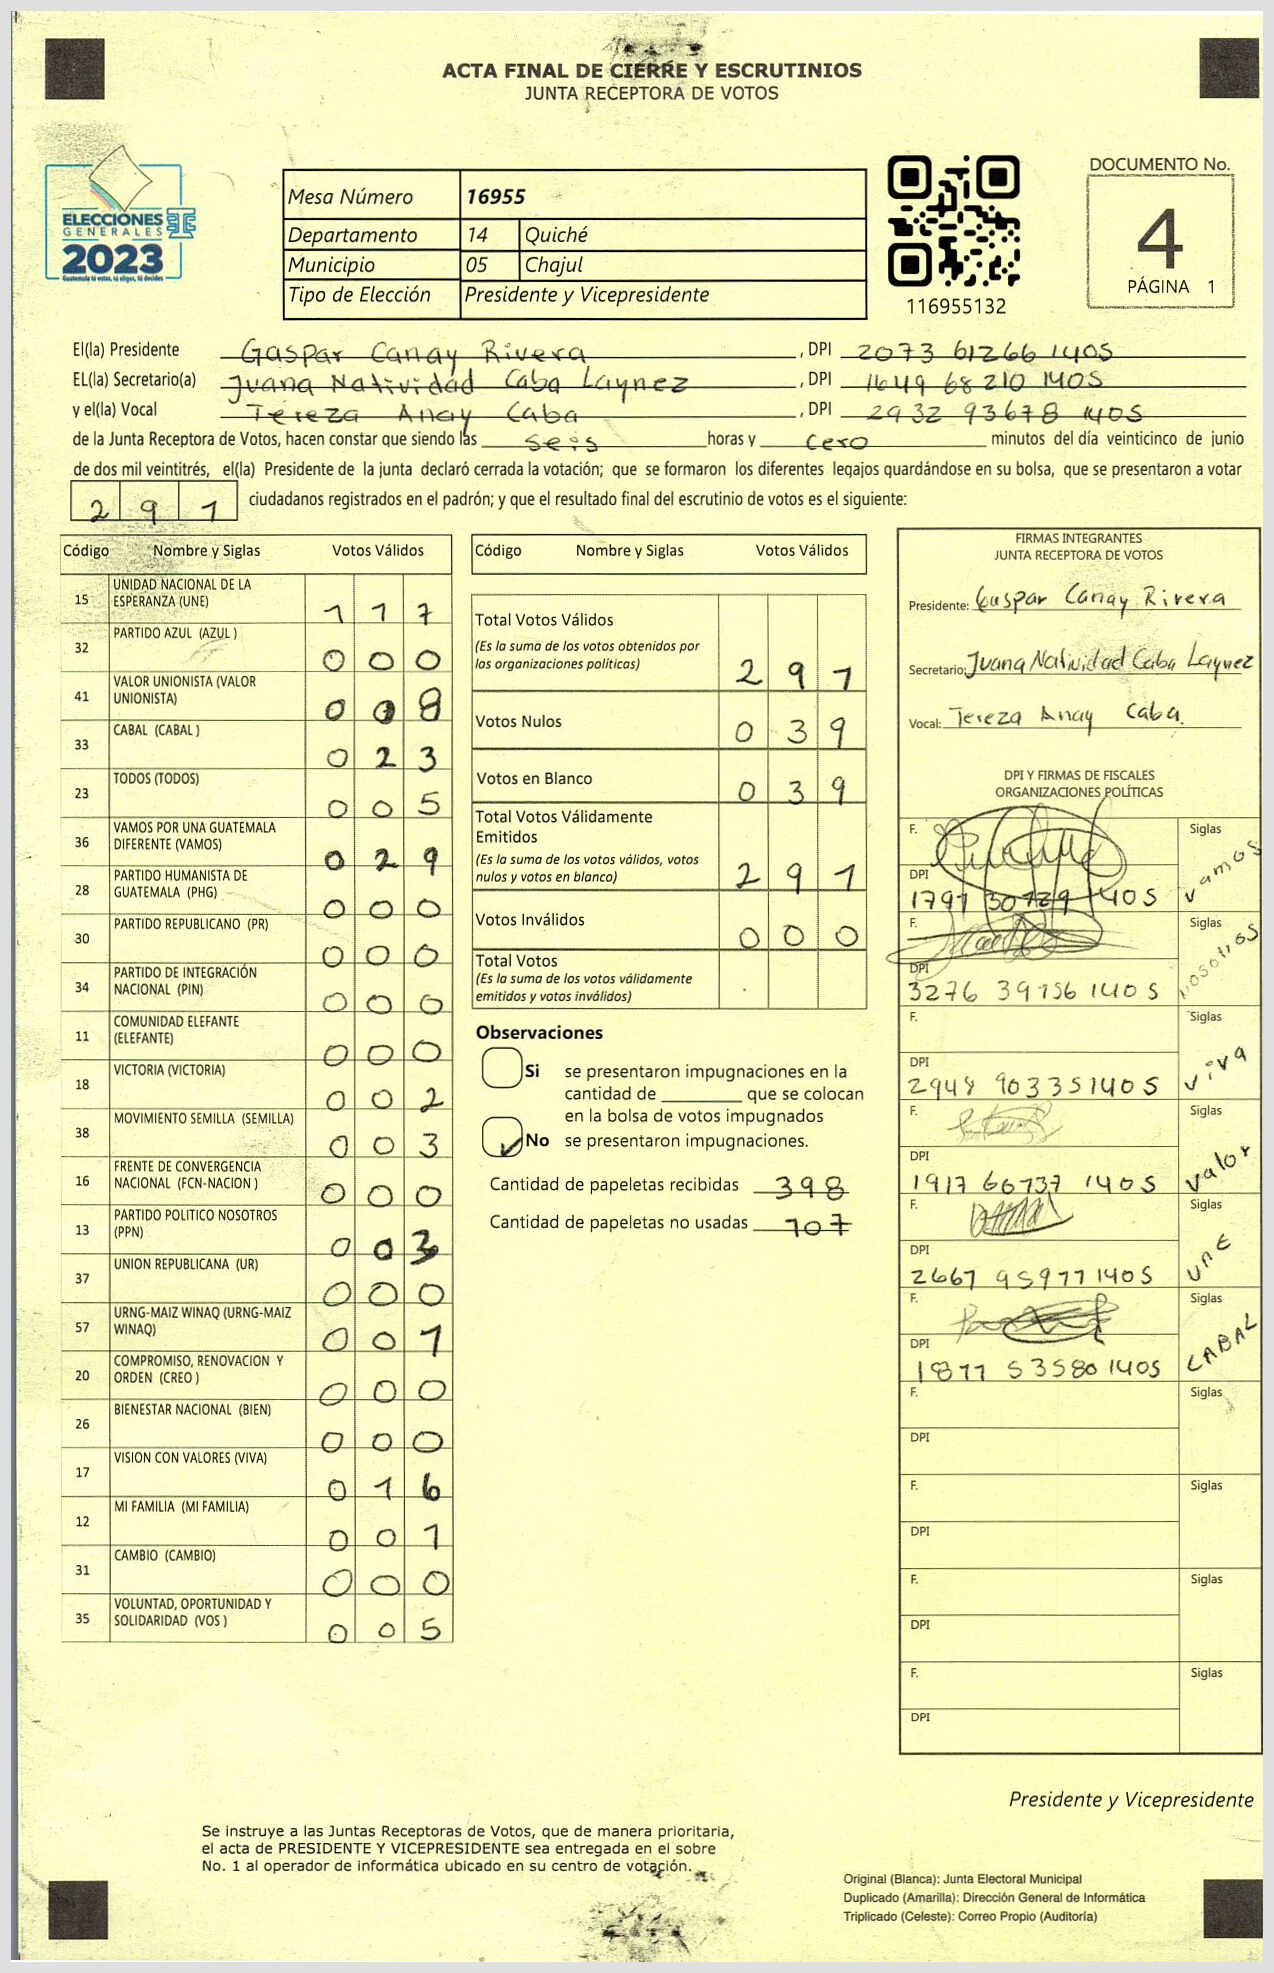 ACTA FINAL DE CIERRE Y ESCRUTINIOS
JUNTA RECEPTORA DE VOTOS
ELECCIONES
GENERALES
2023
Guatemala tú votas, tú eliges, tú decides
Mesa Número 16955
Departamento 14 Quiché
Municipio 05 Chajul
Tipo de Elección Presidente y Vicepresidente
116955132
DOCUMENTO No.
4
PÁGINA 1
El(la) Presidente Gaspar Canay Rivera , DPI 2073 61266 1405
EL(la) Secretario(a) Juana Natividad Caba Laynez , DPI 1649 68210 1405
y el(la) Vocal Tereza Anay Caba , DPI 2932 93678 1405
de la Junta Receptora de Votos, hacen constar que siendo las seis horas y cero minutos del día veinticinco de junio
de dos mil veintitrés, el(la) Presidente de la junta declaró cerrada la votación; que se formaron los diferentes legajos quardándose en su bolsa, que se presentaron a votar
291 ciudadanos registrados en el padrón; y que el resultado final del escrutinio de votos es el siguiente:
Código Nombre y Siglas Votos Válidos
15 UNIDAD NACIONAL DE LA ESPERANZA (UNE) 117
32 PARTIDO AZUL (AZUL ) 000
41 VALOR UNIONISTA (VALOR UNIONISTA) 008
33 CABAL (CABAL ) 023
23 TODOS (TODOS) 005
36 VAMOS POR UNA GUATEMALA DIFERENTE (VAMOS) 029
28 PARTIDO HUMANISTA DE GUATEMALA (PHG) 000
30 PARTIDO REPUBLICANO (PR) 000
34 PARTIDO DE INTEGRACIÓN NACIONAL (PIN) 000
11 COMUNIDAD ELEFANTE (ELEFANTE) 000
18 VICTORIA (VICTORIA) 002
38 MOVIMIENTO SEMILLA (SEMILLA) 003
16 FRENTE DE CONVERGENCIA NACIONAL (FCN-NACION ) 000
13 PARTIDO POLITICO NOSOTROS (PPN) 003
37 UNION REPUBLICANA (UR) 000
57 URNG-MAIZ WINAQ (URNG-MAIZ WINAQ) 001
20 COMPROMISO, RENOVACION Y ORDEN (CREO ) 000
26 BIENESTAR NACIONAL (BIEN) 000
17 VISION CON VALORES (VIVA) 016
12 MI FAMILIA (MI FAMILIA) 001
31 CAMBIO (CAMBIO) 000
35 VOLUNTAD, OPORTUNIDAD Y SOLIDARIDAD (VOS ) 005
Código Nombre y Siglas Votos Válidos
Total Votos Válidos
(Es la suma de los votos obtenidos por
las organizaciones políticas) 291
Votos Nulos 039
Votos en Blanco 039
Total Votos Válidamente
Emitidos
(Es la suma de los votos válidos, votos
nulos y votos en blanco) 291
Votos Inválidos 000
Total Votos
(Es la suma de los votos válidamente
emitidos y votos inválidos)
Observaciones
Si se presentaron impugnaciones en la
cantidad de ________ que se colocan
en la bolsa de votos impugnados
No se presentaron impugnaciones.
Cantidad de papeletas recibidas 398
Cantidad de papeletas no usadas 107
FIRMAS INTEGRANTES
JUNTA RECEPTORA DE VOTOS
Presidente: Gaspar Canay Rivera
Secretario: Juana Natividad Caba Laynez
Vocal: Tereza Anay Caba.
DPI Y FIRMAS DE FISCALES
ORGANIZACIONES POLÍTICAS
F. Siglas vamos
DPI 1797 30729 1405
F. Siglas nosotros
DPI
3276 39156 1405
F. Siglas viva
DPI
2948 90335 1405
F. Siglas valor
DPI
1917 66737 1405
F. Siglas UNE
DPI
2667 95977 1405
F. Siglas CABAL
DPI
1877 53580 1405
F. Siglas
DPI
F. Siglas
DPI
F. Siglas
DPI
F. Siglas
DPI
Presidente y Vicepresidente
Se instruye a las Juntas Receptoras de Votos, que de manera prioritaria,
el acta de PRESIDENTE Y VICEPRESIDENTE sea entregada en el sobre
No. 1 al operador de informática ubicado en su centro de votación.
Original (Blanca): Junta Electoral Municipal
Duplicado (Amarilla): Dirección General de Informática
Triplicado (Celeste): Correo Propio (Auditoría)